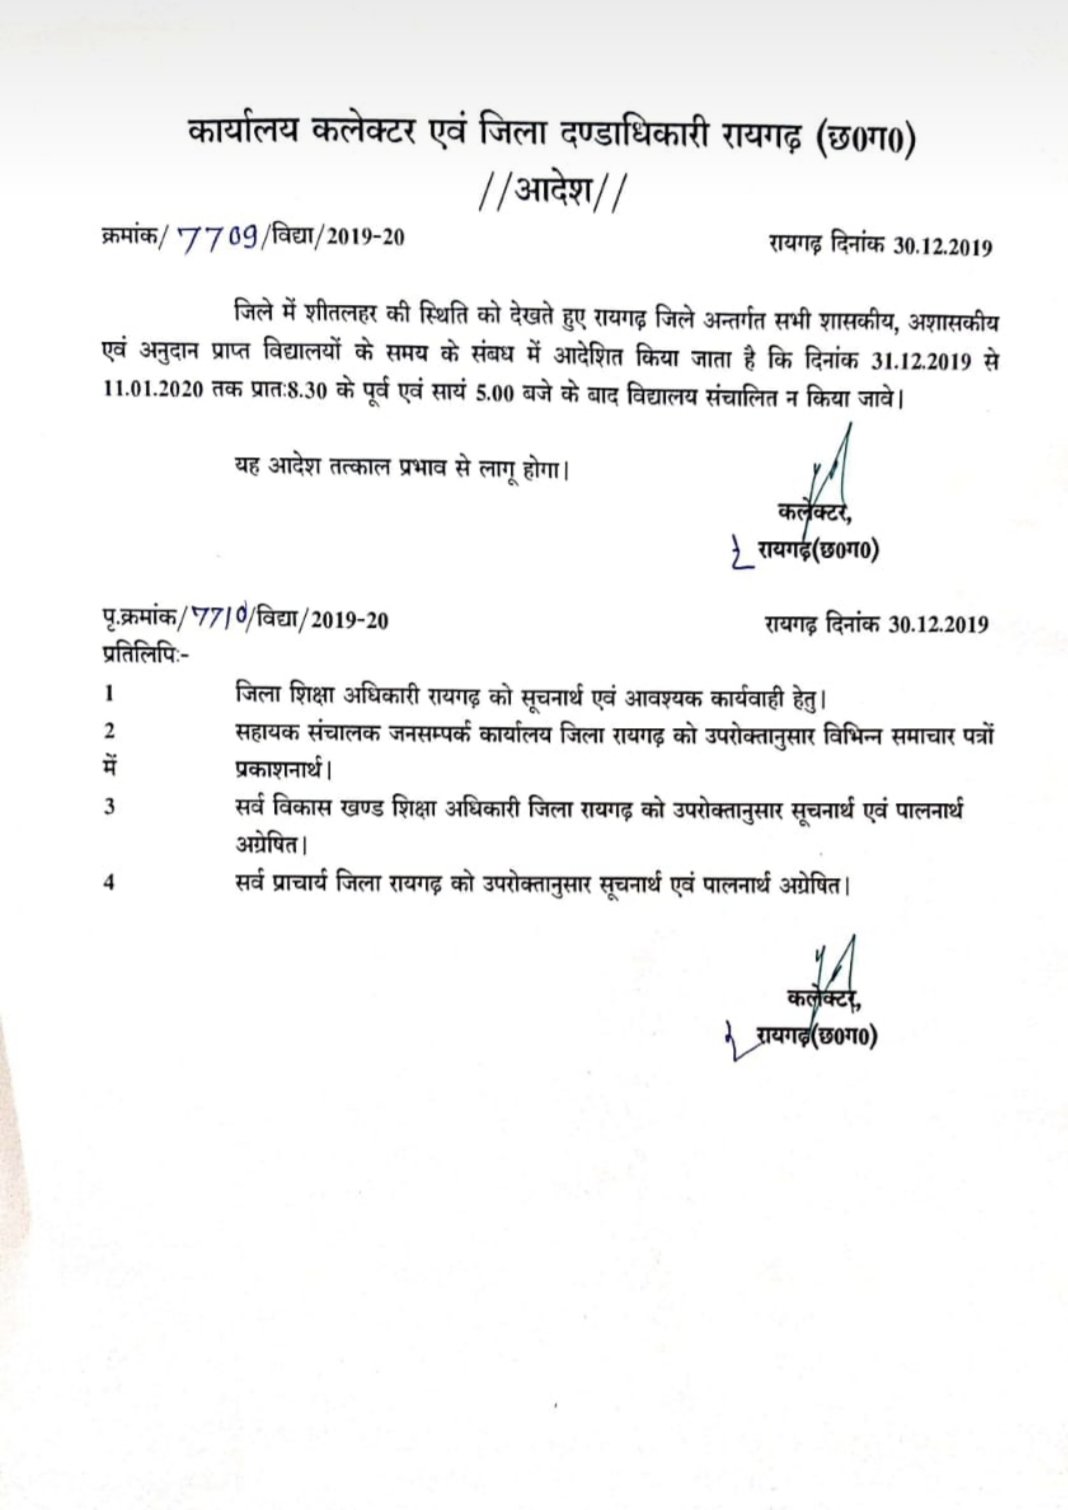 कार्यालय कलेक्टर एवं जिला दण्डाधिकारी रायगढ़ (छ0ग0)
//आदेश//
क्रमांक/ 7709/विद्या/2019-20
रायगढ़ दिनांक 30.12.2019
जिले में शीतलहर की स्थिति को देखते हुए रायगढ़ जिले अन्तर्गत सभी शासकीय, अशासकीय
एवं अनुदान प्राप्त विद्यालयों के समय के संबध में आदेशित किया जाता है कि दिनांक 31.12.2019 से
11.01.2020 तक प्रातः8.30 के पूर्व एवं सायं 5.00 बजे के बाद विद्यालय संचालित न किया जावे।
यह आदेश तत्काल प्रभाव से लागू होगा।
कलेक्टर,
रायगढ़(छ0ग0)
पृ.क्रमांक/7710/विद्या/2019-20
रायगढ़ दिनांक 30.12.2019
प्रतिलिपिः-
1 जिला शिक्षा अधिकारी रायगढ़ को सूचनार्थ एवं आवश्यक कार्यवाही हेतु।
2 सहायक संचालक जनसम्पर्क कार्यालय जिला रायगढ़ को उपरोक्तानुसार विभिन्न समाचार पत्रों
में प्रकाशनार्थ।
3 सर्व विकास खण्ड शिक्षा अधिकारी जिला रायगढ़ को उपरोक्तानुसार सूचनार्थ एवं पालनार्थ
अग्रेषित।
4 सर्व प्राचार्य जिला रायगढ़ को उपरोक्तानुसार सूचनार्थ एवं पालनार्थ अग्रेषित।
कलेक्टर,
रायगढ़(छ0ग0)